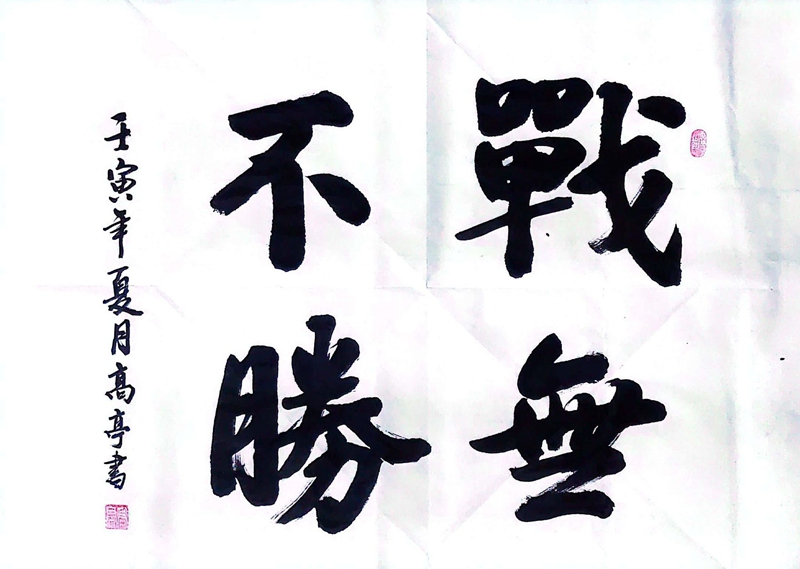 戰無
不勝
壬寅年夏月高亭書